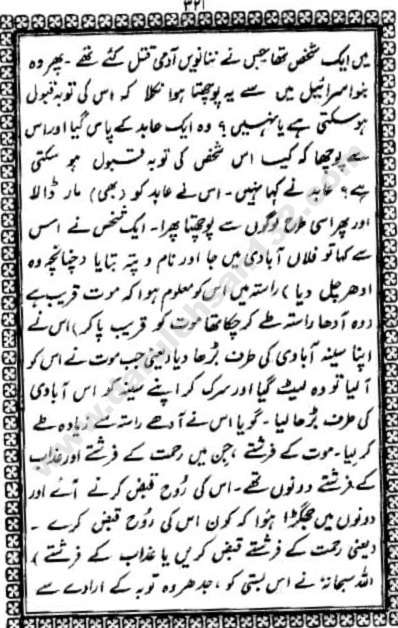 ۳۲۱
میں ایک شخص تھا جس نے ننانویں آدمی قتل کئے تھے ۔ پھر وہ
بنو اسرائیل میں سے یہ پوچھتا ہوا نکلا کہ اس کی توبہ قبول
ہو سکتی ہے یا نہیں ؟ وہ ایک عابد کے پاس گیا اور اس
سے پوچھا کہ کیا اس شخص کی توبہ قبول ہو سکتی
ہے ؟ عابد نے کہا نہیں ۔ اس نے عابد کو (بھی) مار ڈالا
اور پھر اسی طرح لوگوں سے پوچھتا پھرا ۔ ایک شخص نے اس
سے کہا تو فلاں آبادی میں جا اور نام و پتہ بتایا (چنانچہ وہ
ادھر چل دیا) راستہ میں اس کو معلوم ہوا کہ موت قریب ہے
(وہ آدھا راستہ طے کر چکا تھا موت کو قریب پا کر) اس نے
اپنا سینہ آبادی کی طرف بڑھا دیا (یعنی جب موت نے اس کو
آ لیا تو وہ لیٹ گیا اور سرک کر اپنے سینہ کو اس آبادی
کی طرف بڑھا لیا ۔ گویا اس نے آدھے راستہ سے زیادہ طے
کر لیا ۔ موت کے فرشتے ، جن میں رحمت کے فرشتے اور عذاب
کے فرشتے دونوں تھے ۔ اس کی رُوح قبض کرنے آئے اور
دونوں میں جھگڑا ہوا کہ کون اس کی رُوح قبض کرے ۔
(یعنی رحمت کے فرشتے قبض کریں یا عذاب کے فرشتے)
اللہ سبحانہٗ نے اس بستی کو ، جدھر وہ توبہ کے ارادے سے